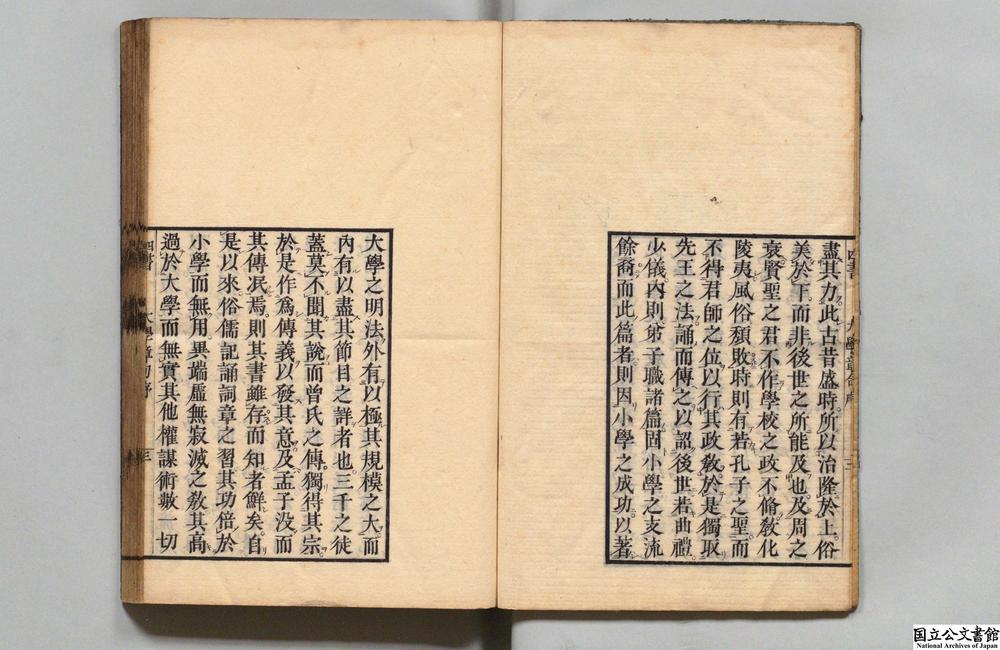 盡其力此古昔盛時所以治隆於上俗
美於下而非後世之所能及也及周之
衰賢聖之君不作學校之政不脩敎化
陵夷風俗頽敗時則有若孔子之聖而
不得君師之位以行其政敎於是獨取
先王之法誦而傳之以詔後世若曲禮
少儀內則弟子職諸篇固小學之支流
餘裔而此篇者則因小學之成功以著
大學之明法外有以極其規模之大而
內有以盡其節目之詳者也三千之徒
蓋莫不聞其說而曾氏之傳獨得其宗
於是作爲傳義以發其意及孟子沒而
其傳泯焉則其書雖存而知者鮮矣自
是以來俗儒記誦詞章之習其功倍於
小學而無用異端虛無寂滅之敎其高
過於大學而無實其他權謀術數一切
四書 大學章句序 三
国立公文書館
National Archives of Japan